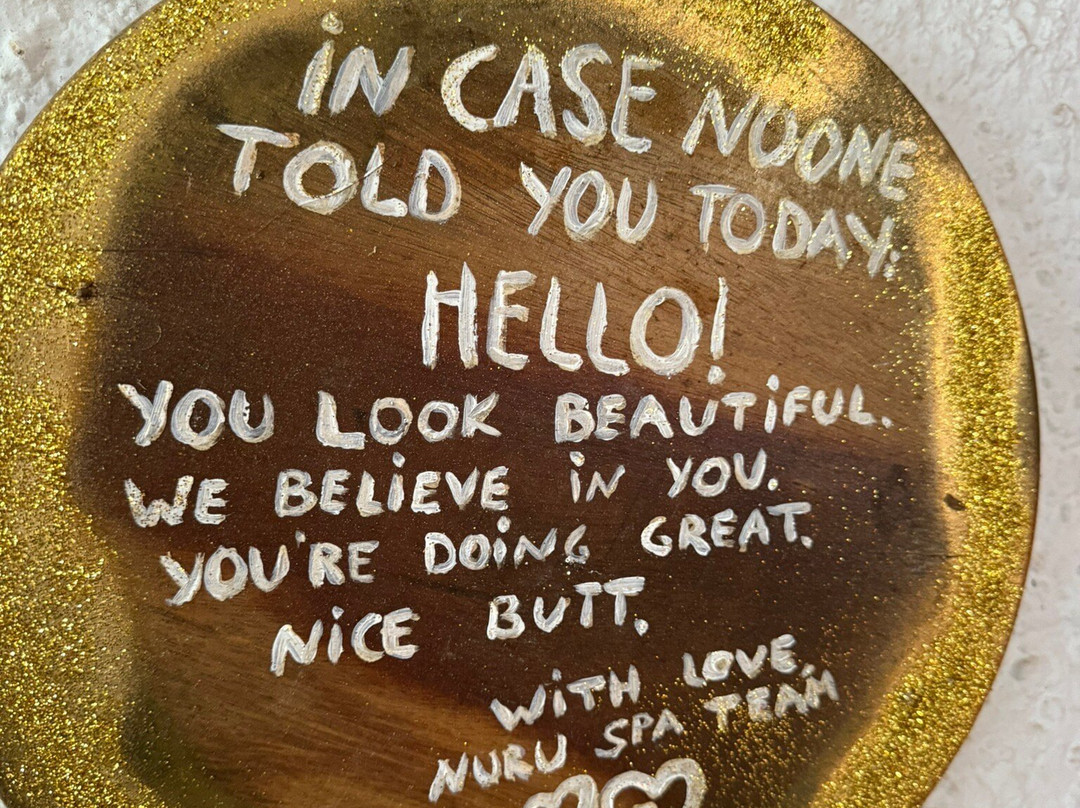 iN CASE NOONE
TOLD YOU TODAY:
HELLO!
YOU LOOK BEAUTiFUL.
WE BELiEVE iN YOU.
YOU'RE DOiNG GREAT.
NiCE BUTT.
WiTH LOVE,
NURU SPA TEAM